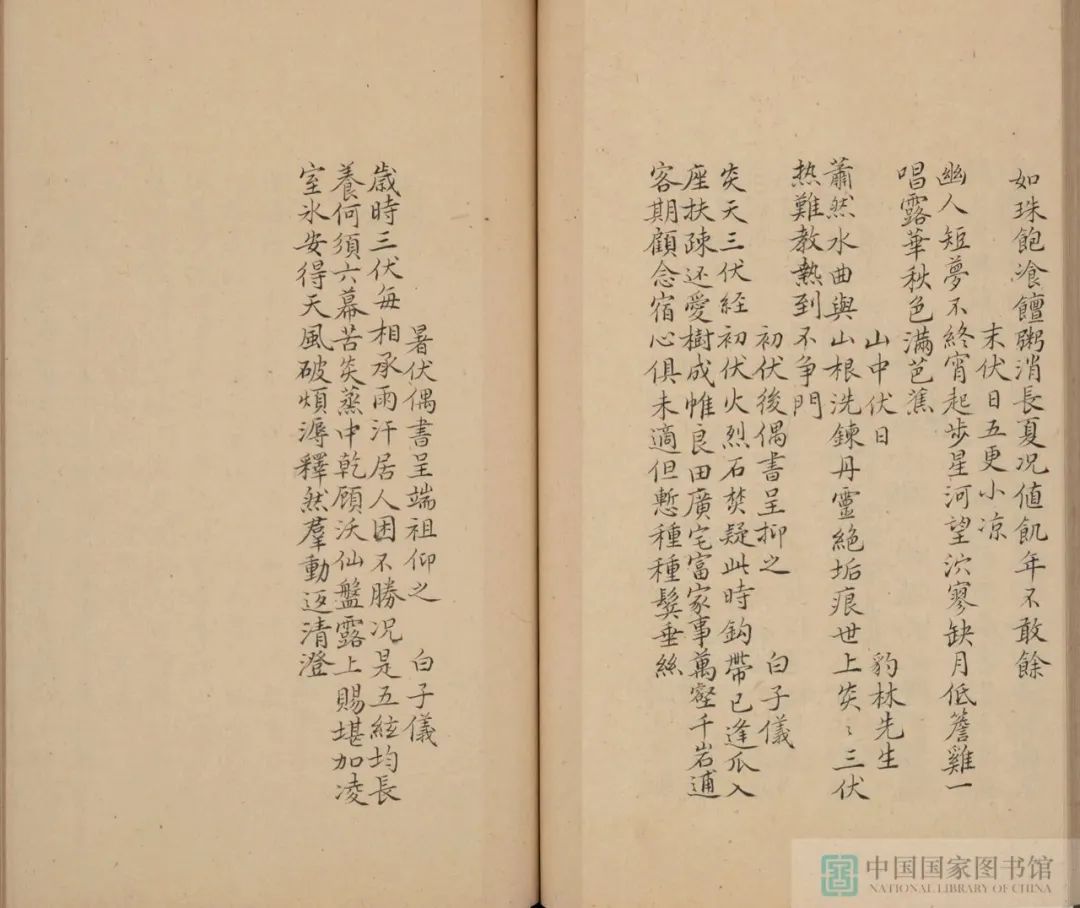 如珠飽飡饘粥消長夏况値飢年不敢餘
末伏日五更小凉
幽人短夢不終宵起步星河望泬寥缺月低簷雞一
唱露華秋色滿芭蕉
山中伏日 豹林先生
蕭然水曲與山根洗鍊丹靈絶垢痕世上炎〻三伏
热難教熱到不争門
初伏後偶書呈抑之 白子儀
炎天三伏経初伏火烈石焚疑此時鈎帶已逢瓜入
座扶踈还愛樹成帷良田廣宅富家事萬壑千岩逋
客期顧念宿心俱未適但慙種種髮垂絲
暑伏偶書呈端祖仰之 白子儀
歳時三伏每相承雨汗居人困不勝况是五絃均長
養何須六幕苦炎蒸中乾顧沃仙盤露上賜堪加凌
室氷安得天風破煩溽釋然羣動返清澄
中国国家图书馆
NATIONAL LIBRARY OF CHINA